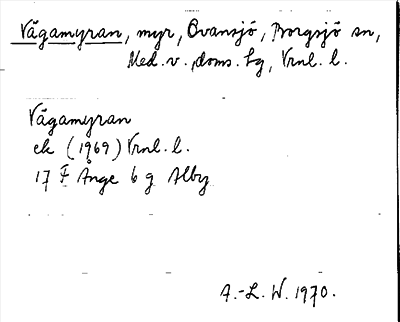 Vågamyran, myr, Ovansjö, Borgsjö sn,
Med. v. doms. tg, Vrnl. l.
Vågamyran
ek (1969) Vrnl. l.
17 F Ånge 6 g Alby
A.-L. W. 1970.